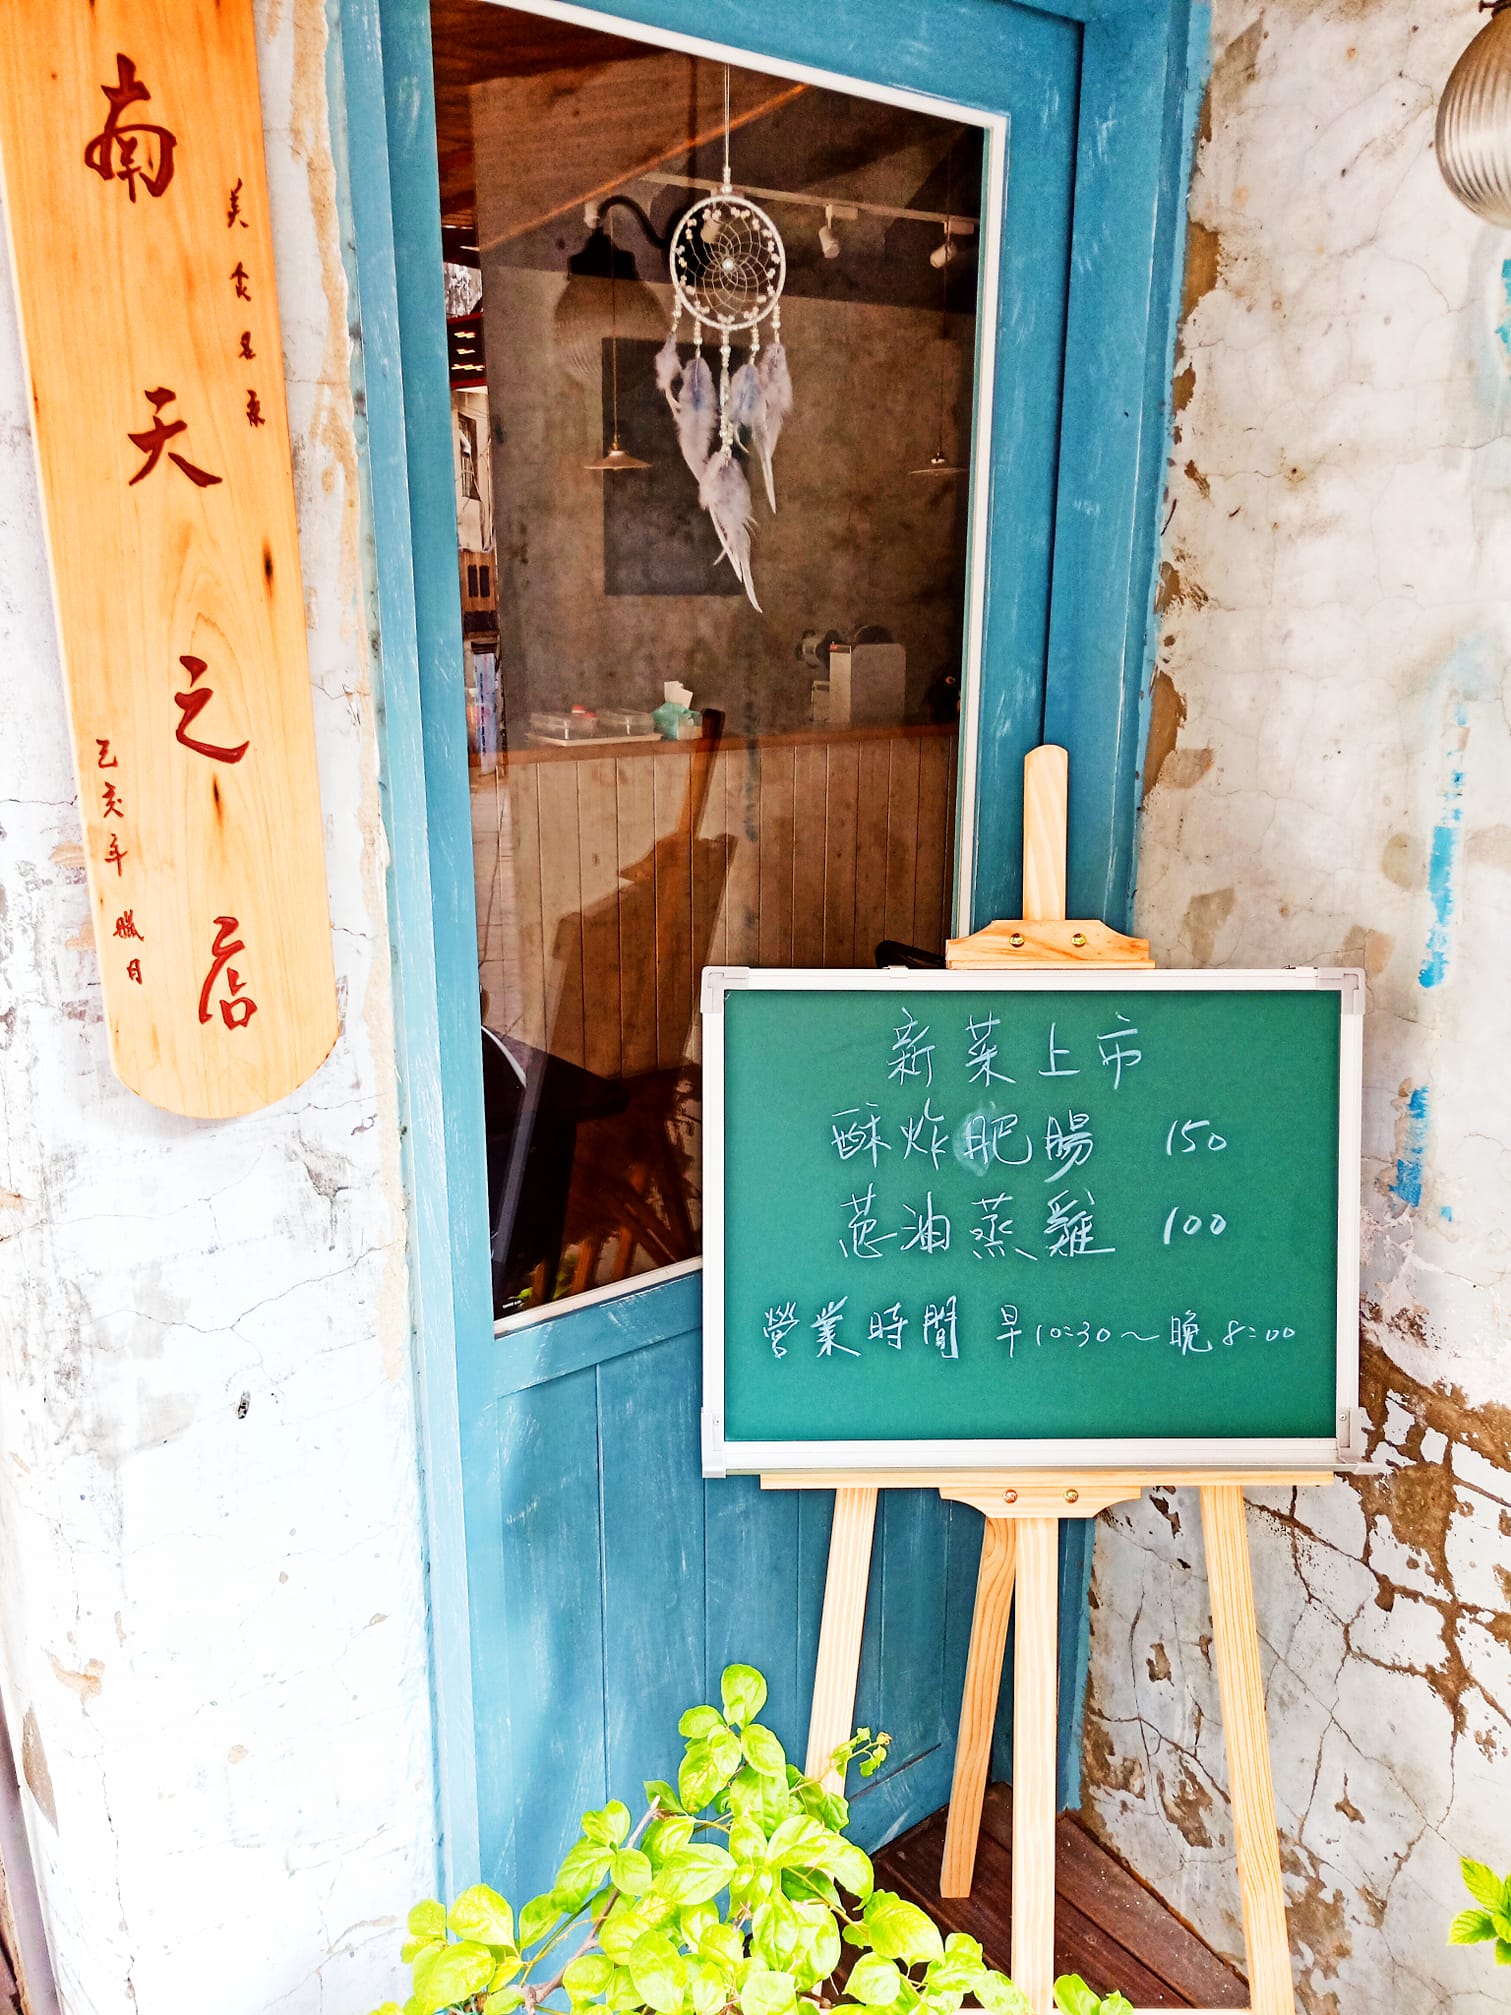 美食名家
南天之店
乙亥年 臘月
新菜上市
酥炸肥腸 150
蔥油蒸雞 100
營業時間 早10:30~晚8:00